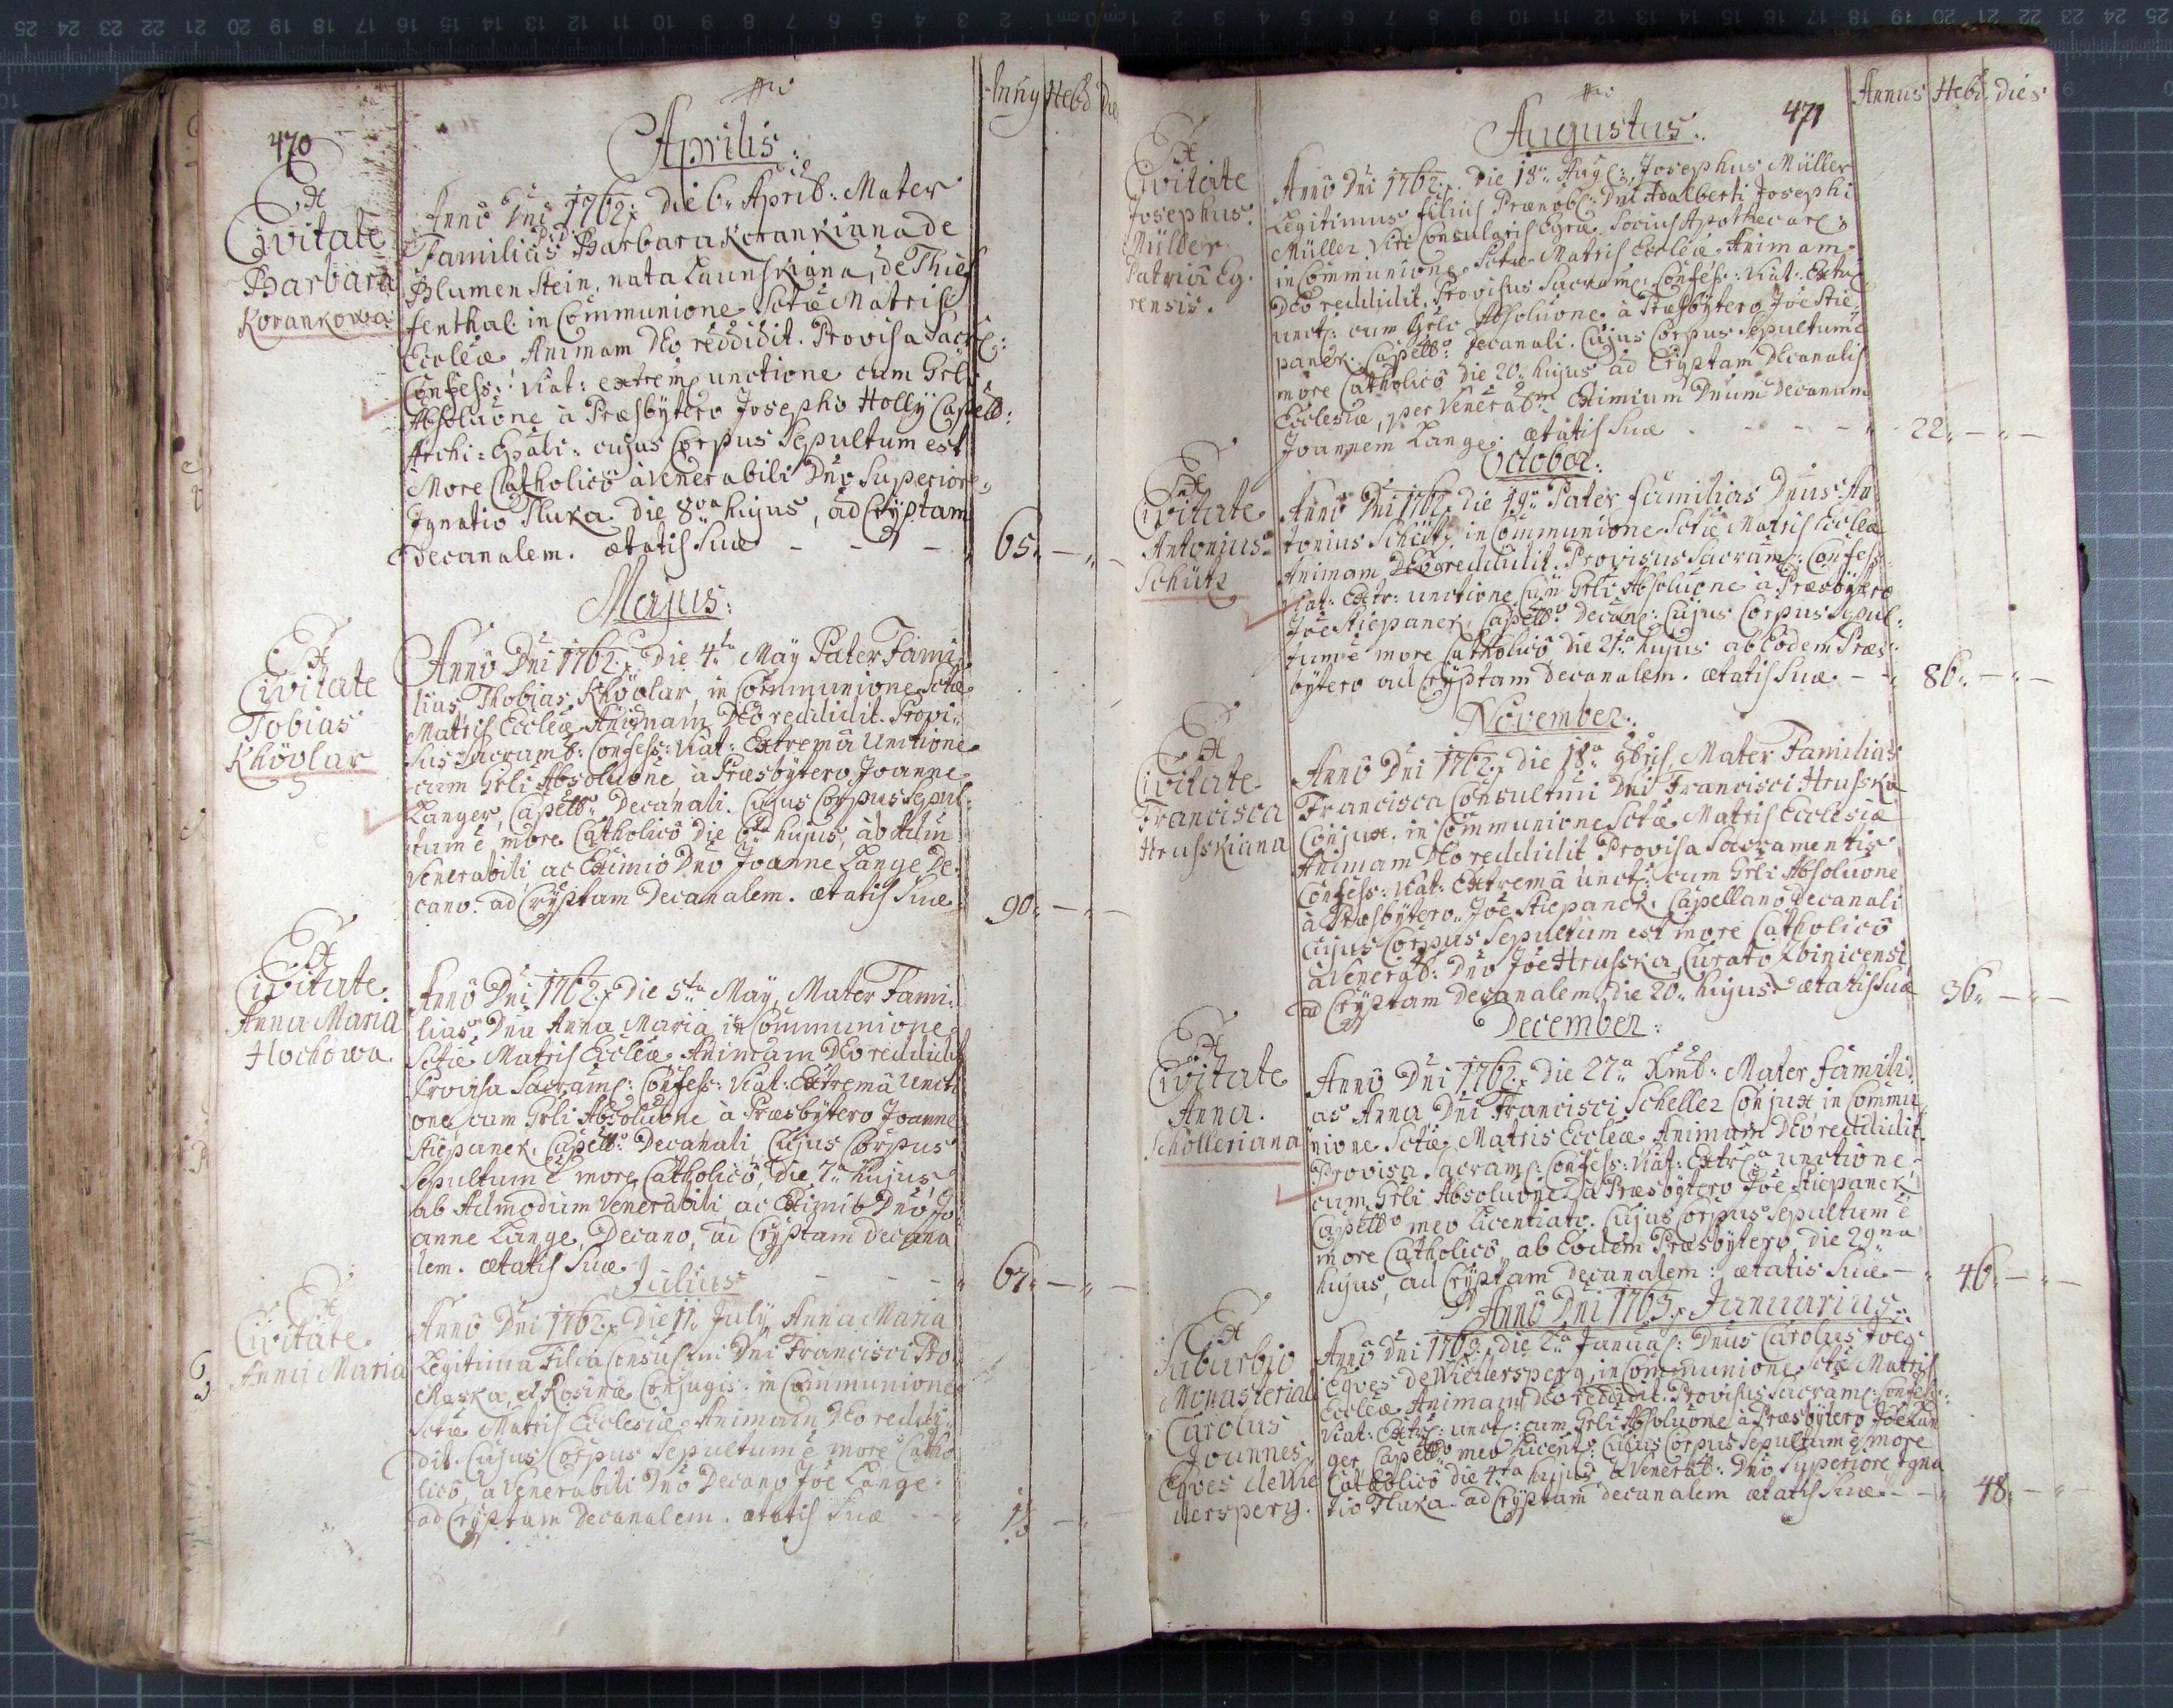 470
Annus Hebd Die
Aprilis:
Ex
Civitate
Barbara
Korankowa
Anno Dni 1762. die 6. April: Mater
Familias Barbara Korankiana de
Blumenstein, nata Launskiana, de Thies
senthal. in Communione Sctae Matris
Eccleiae Animam DEo reddidit. Provisa Sacr:
Confess: Viat: extrem unctione cum Grli
Absoluone à Praesbytero Josepho Holly Capell:
Archi-Epali: cujus Corpus Sepultum est
More Catholicô à Venerabili Dno Superiore
Ignatio Tluka die 8va hujus, ad Cryptam
Decanalem. aetatis Suae - - - 65. - -
Majus:
Ex
Civitate
Tobias
Khövlar
Anno Dni 1762. Die 4ta May Pater Fami-
lias Thobias Khövlar, in Communione Sctae
Matris Eccleiae Animam DEo reddidit. Provi-
sus Sacramb: Confess: Viat: Extremâ Unctione
cum Grli Absoluone à Praesbytero Joanne
Langer, Capello Decanali. Cujus Corpus Sepul-
tum e more Catholicô die 6ta hujus, ab Adm
Venerabili ac Eximio Dno Joanne Lange De-
cano. ad Cryptam Decanalem. aetatis Suae 90. - -
Ex
Civitate
Anna Maria
Hochowa.
Anno Dni 1762. Die 5ta May, Mater Fami-
lias Dna Anna Maria, in Communione
Sctae Matris Eccleiae Animam DEo reddidit
Provisa Sacram: Confess: Viat: Extremâ Uncti
one, cum Grli Absoluone à Praesbytero Joanne
Stiepanek, Capello Decanali, Cujus Corpus
Sepultum e more Catholicô, Die 7a hujus,
ab Admodum Venerabili ac Eximio Dno Jo
anne Lange, Decano, ad Cryptam Decana
lem. aetatis Suae. - - - 67. - -
Julius
Ex
Civitate
Anna Maria
Anno Dni 1762. Die 11. July, Anna Maria
Legitima Filia Consultmi Dni Francisci Pro
chaska, et Rosinae Conjugis. in Communione
Sctae Matris Ecclesiae Animam DEo reddi-
dit. Cujus Corpus Sepultum e more Catho
licô, a Venerabili Dno Decano Joe Lange.
ad Cryptam Decanalem. aetatis Suae - - -
471
Annus Hebd. Dies
Augustus.
Ex
Civitate
Josephus
Müller
Patriâ Eg-
rensis.
Anno Dni 1762. Die 18a Aug: Josephus Müller
Legitimus filius Praenob: Dni Adalberti Josephi
Müller Viri Consularis Egrae Socius Apothecar:
in Communione Sctae Matris Eccleiae Animam
DEo reddidit. Provisus Sacram: Confess: Viat: Extr
unct: cum Grli Absoluone à Praesbytero Joe Stie-
panek. Capello: Decanali. Cujus Corpus Sepultum e
more Catholicô Die 20. hujus ad Cryptam Decanalis
Ecclesiae, per Venerabm Eximium Dnum Decanum
Joannem Lange. aetatis Suae - - - - 22. - -
October:
Ex
Civitate
Antonius
Schütz
Anno Dni 1762. Die 19a Pater familias Dnus An
tonius Schütz, in Communione Sctae Matris Eccleiae
Animam DEo reddidit. Provisus Sacram: Confess:
Viat: Extr: unctione cum Grli Absoluone à Praesbytero
Joe Stiepanek, Capello Decan: Cujus Corpus Sepul-
tum e more Catholicô Die 21a hujus ab Eodem Praes-
bytero ad Cryptam Decanalem. aetatis Suae. - - 86. - -
November.
Ex
Civitate
Francisca
Hrusskiana
Anno Dni 1762. Die 18a 9bris, Mater Familias
Francisca Consultmi Dni Francisci Hrusska
Conjux. in Communione Sctae Matris Ecclesiae
Animam DEo reddidit Provisa Sacramentis
Confess: Viat: Extremâ unct: cum Grli Absoluone
à Praesbytero Joe Stiepanek, Capellano Decanali
Cujus Corpus Sepultum est more Catholicô
à Venerab: Dno Joe Hrusska, Curato Zbinicensi
ad Cryptam Decanalem Die 20. hujus. aetatis Suae 36. - -
December:
Ex
Civitate
Anna.
Schölleriana
Anno Dni 1762. Die 27a Xmb: Mater famili-
as Anna Dni Francisci Scheller Conjux in Commu
nione Sctae Matris Eccleiae Animam DEo reddidit.
Provisa Sacram: Confess: Viat: Extr: unctione
cum Grli Absoluone à Praesbytero Joe Stiepanek
Capello meo Licentiato. Cujus Corpus Sepultum e
more Catholicô ab Eodem Praesbytero Die 29na
hujus, ad Cryptam Decanalem: aetatis Suae - 46. - -
Anno Dni 1763. Januarius.
Ex
Suburbio
Monasteriali
Carolus
Joannes
Eqves de Wie
dersperg.
Anno Dni 1763. Die 2a Januar: Dnus Carolus Joes
Eqves de Wiedersperg, in Communione Sctae Matris
Eccleiae Animam DEo reddidit. Provisus Sacram: Confess:
Viat: Extr: unct: cum Grli Absoluone à Praesbytero Joe Lan
ger Capello meo Licent: Cujus Corpus Sepultum e more
Catholicô die 4ta hujus à Venerab: Dno Superiore Igna
tio Tluka ad Cryptam Decanalem aetatis Suae - - 48. - -